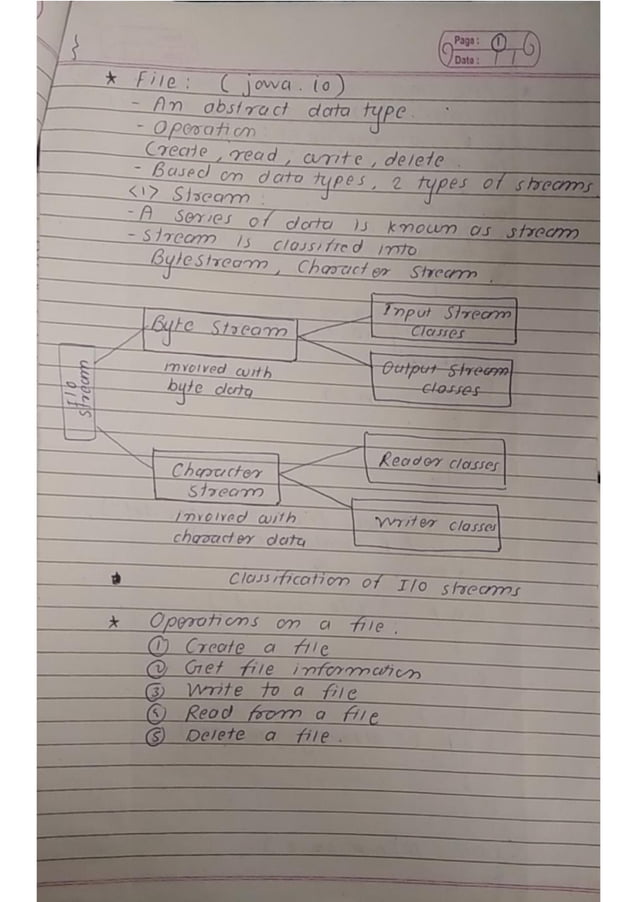 }
Page: 1
Date:
* File: (java.io)
- An abstract data type.
- Operation
Create, read, write, delete.
- Based on data types, 2 types of streams
<1> Stream:
- A series of data is known as stream
- Stream is classified into
Bytestream, Character Stream.
Byte Stream
Input Stream
Classes
involved with
byte data
Output Stream
classes
I/O
Stream
Character
Stream
Reader classes
involved with
character data
Writer classes
Classification of I/O streams
* Operations on a file:
① Create a file
② Get file information
③ Write to a file
④ Read from a file
⑤ Delete a file.